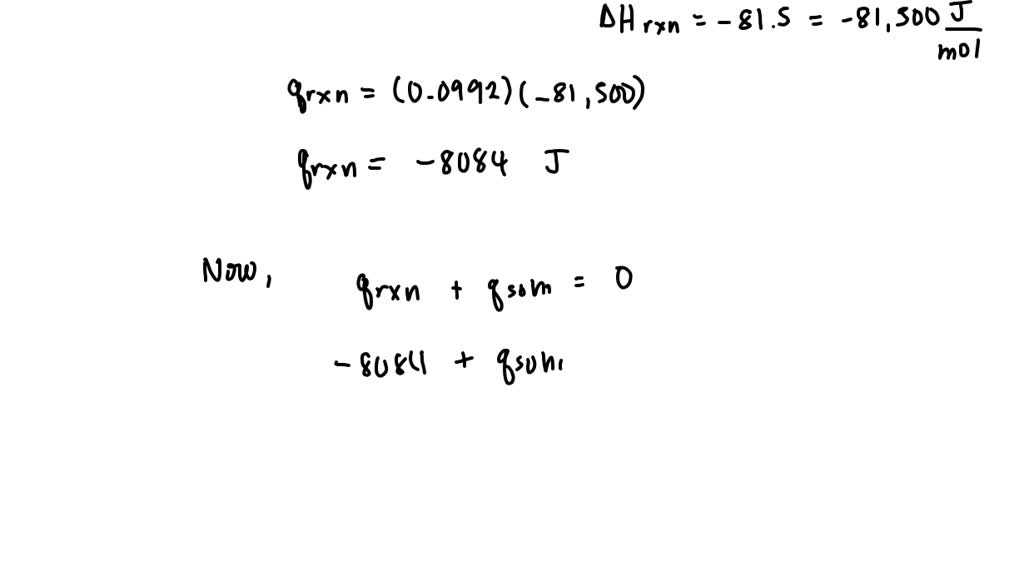 ΔHrxn = -81.5 = -81,500 J/mol
qrxn = (0.0992)(-81,500)
qrxn = -8084 J
Now, qrxn + qsoln = 0
-8084 + qsoln